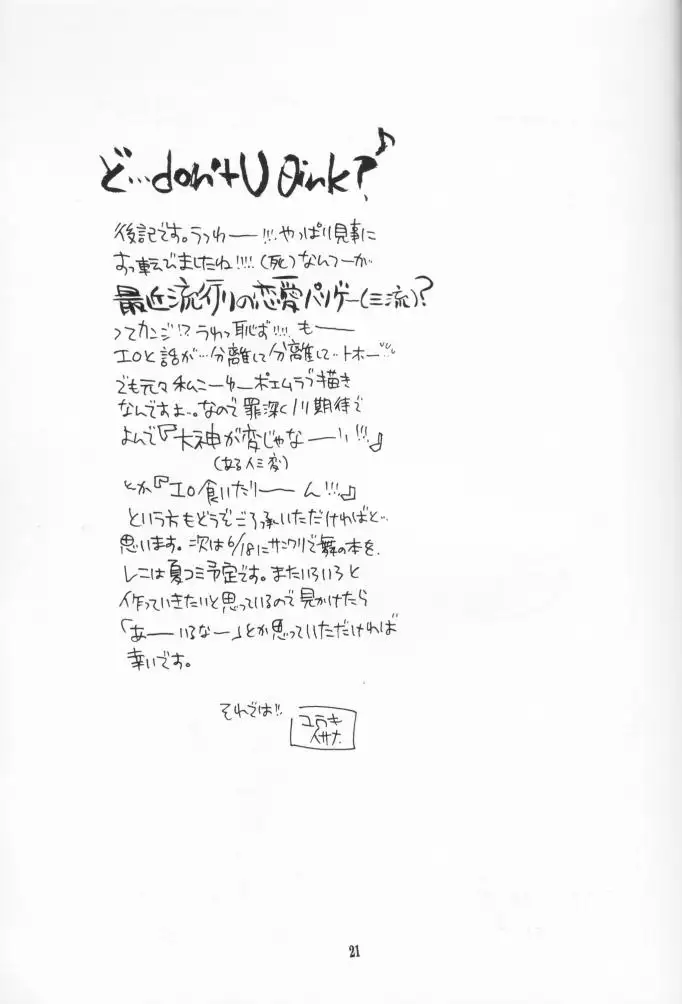 ど…don't U θink?♪
後記です。うつわー――!!!、やっぱり見事に
すっ転んでましたね!!!!(死)なんつーか
最近流行りの恋愛パリゲー(三流)?
ってカンジ!?うわっ恥ず!!!!、もー―
エロと話が…分離して分離して…トホー!!!
でも元々私こーゆーポエムラブ描き
なんですよ…。なので罪深くノリ期待で
よんで『大神が変じゃなー――い!!!』
(ある イミ 変)
とか『エロ食いたりー――ん!!!』
という方もどうぞご了承いただければと…
思います。次は6/18にサンクリで舞の本を、
レニは夏コミ予定です。またいろいろと
作っていきたいと思っているので見かけたら
「あー――いるなー」とか思っていただければ
幸いです。
それでは!!
ユラキ
イサナ
21